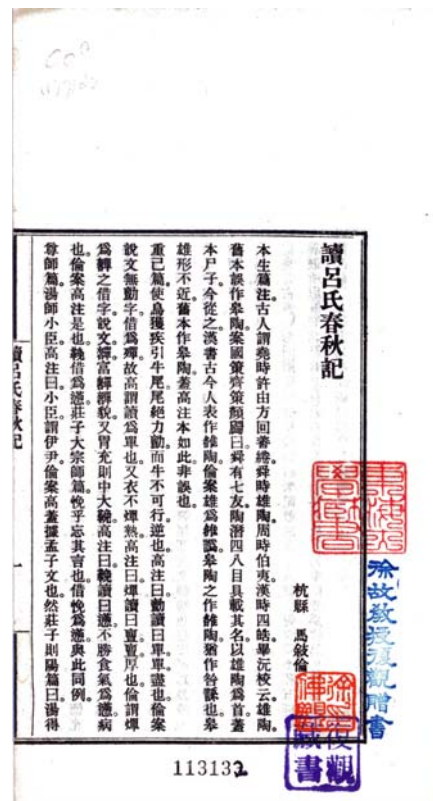 讀呂氏春秋記
杭縣 馬敍倫
本生篇注古人謂堯時許由方回善綣舜時雄陶周時伯夷漢時四皓畢沅校云雄陶。
舊本誤作皋陶案國策齊策顏斶曰舜有七友陶潛四八目具載其名以雄陶爲首蓋
本尸子今從之漢書古今人表作雒陶倫案雄爲雒譌皋陶之作雒陶猶作咎繇也皋
雄形不近舊本作皋陶蓋高注本如此非誤也。
重己篇使烏獲疾引牛尾尾絕力勯而牛不可行逆也高注曰勯讀曰單單盡也倫案
說文無勯字借爲殫故高謂讀爲單也又衣不燀熱高注曰燀讀曰亶亶厚也倫謂燀
爲奲之借字說文奲富奲奲貌又胃充則中大鞔高注曰鞔讀曰懣不勝食氣爲懣病
也倫案高注是也鞔借爲懣莊子大宗師篇悗乎忘其言也借悗爲懣與此同例。
尊師篇湯師小臣高注曰小臣謂伊尹倫案高蓋據孟子文也然莊子則陽篇曰湯得
讀呂氏春秋記
一
東海大學藏書
徐故教授復觀贈書
復觀藏書
113132